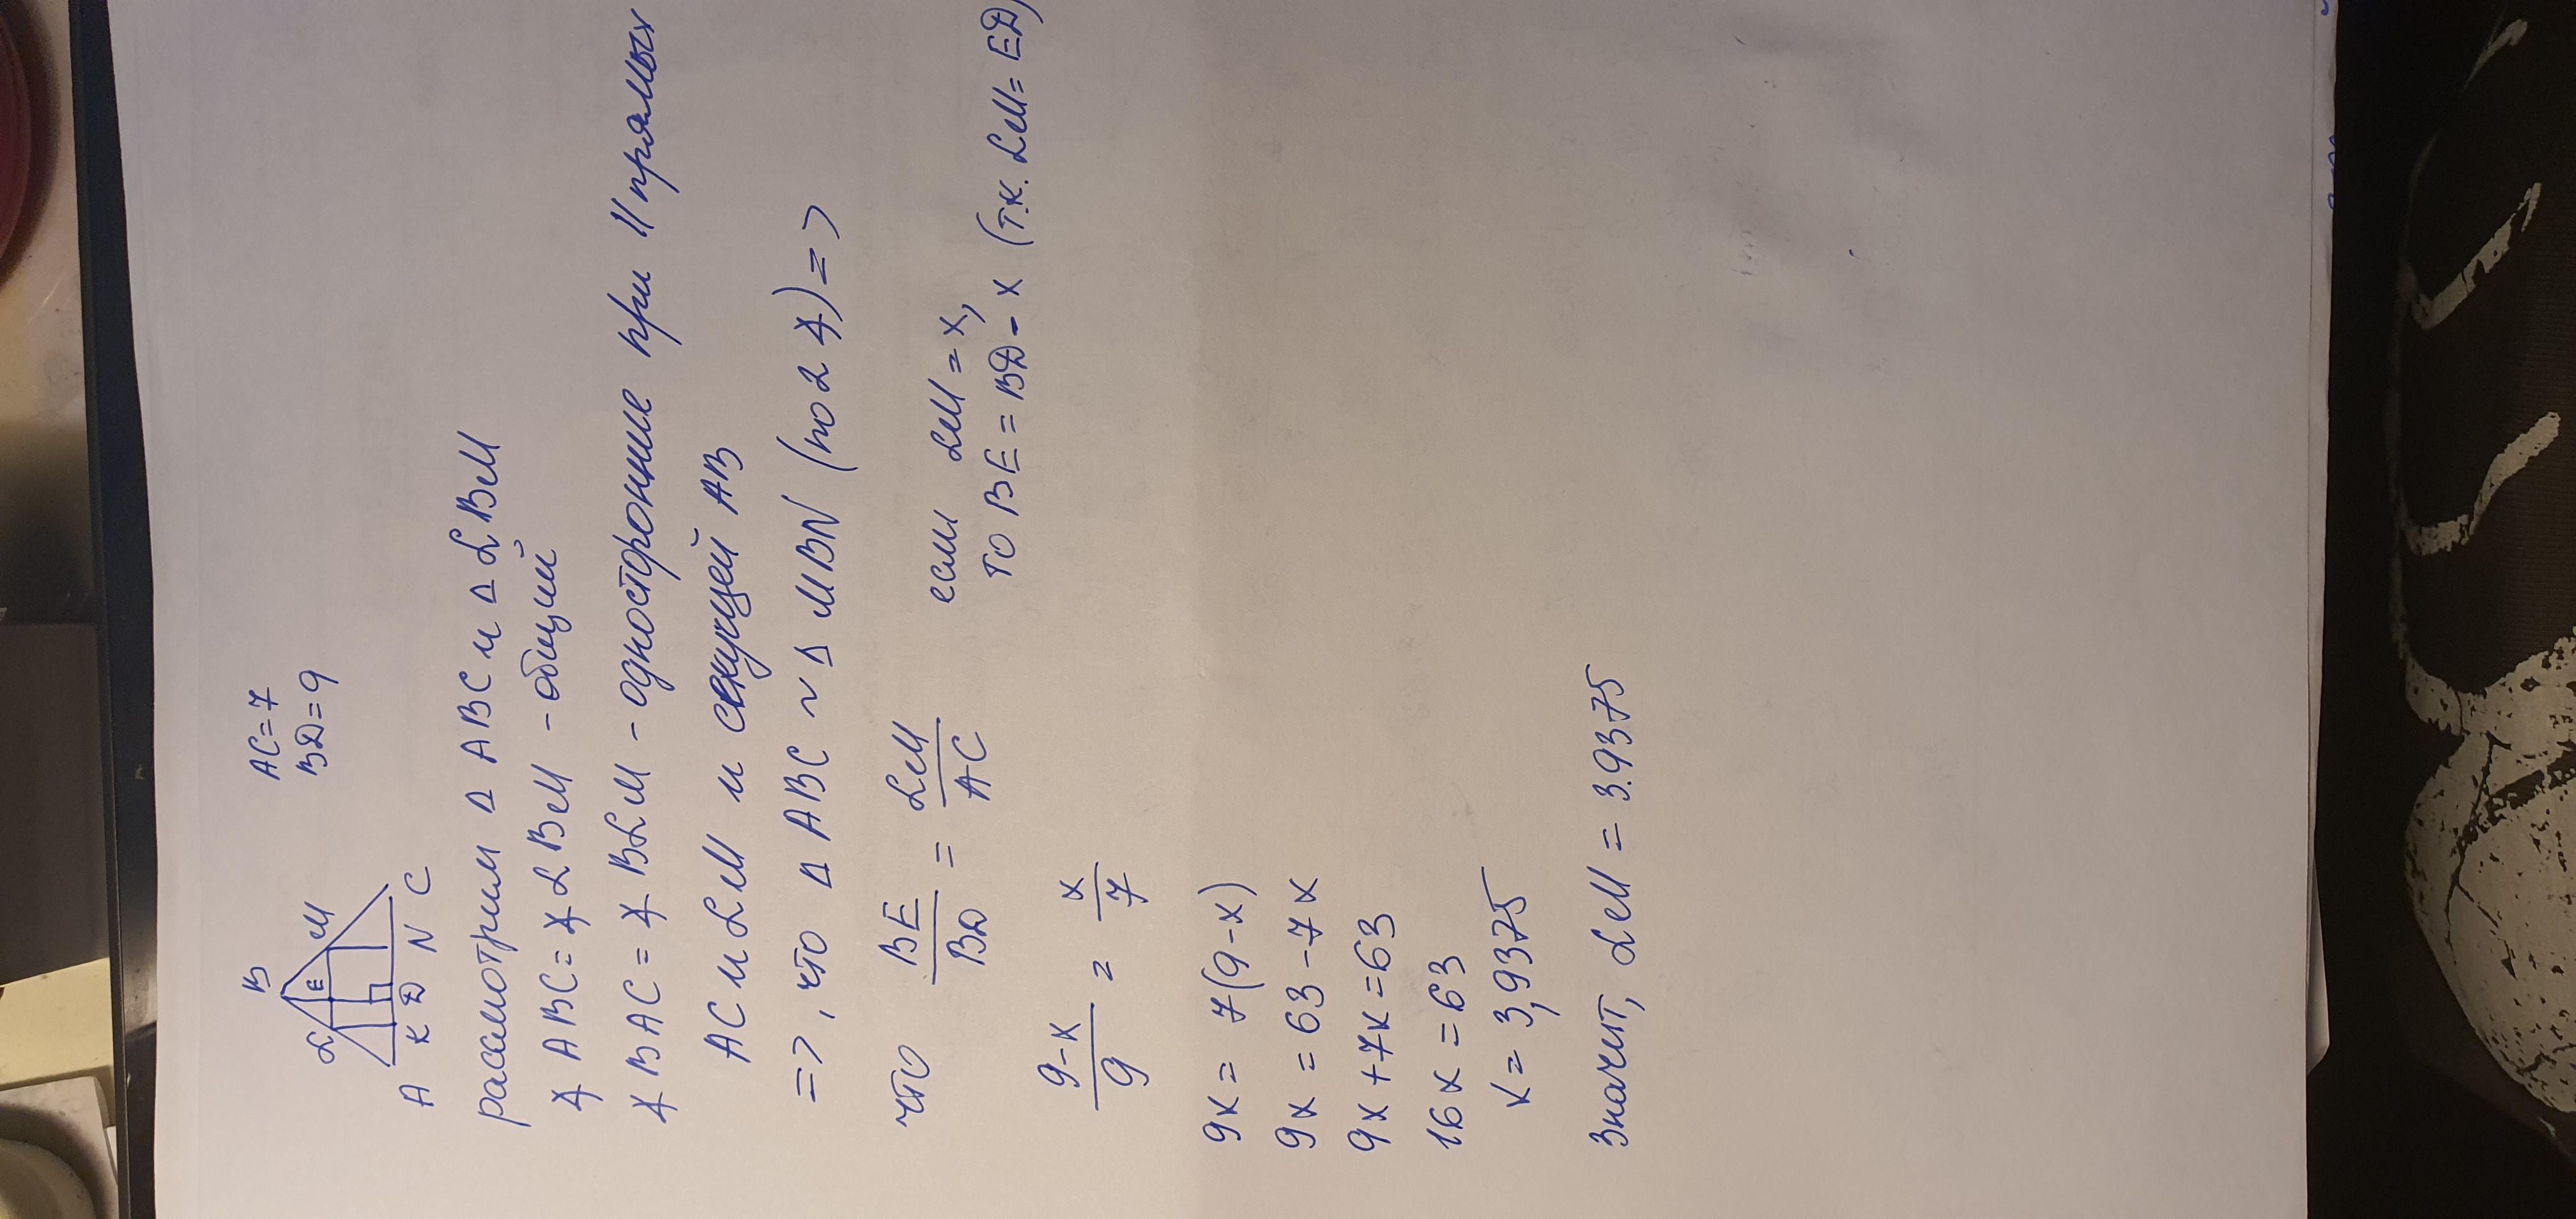 AC=7
BD=9
B
L
M
E
A
K
D
N
C
рассмотрим Δ ABC и Δ LBM
∡ ABC = ∡ LBM - общий
∡ BAC = ∡ BLM - односторонние при || прямых
AC и LM и секущей AB
=>, что Δ ABC ~ Δ MBN (по 2 ∡) =>
что BE/BD = LM/AC
если LM = x,
то BE = BD - x (т.к. LM = ED)
9-x/9 = x/7
9x = 7(9-x)
9x = 63 - 7x
9x + 7x = 63
16x = 63
x = 3,9375
Значит, LM = 3.9375